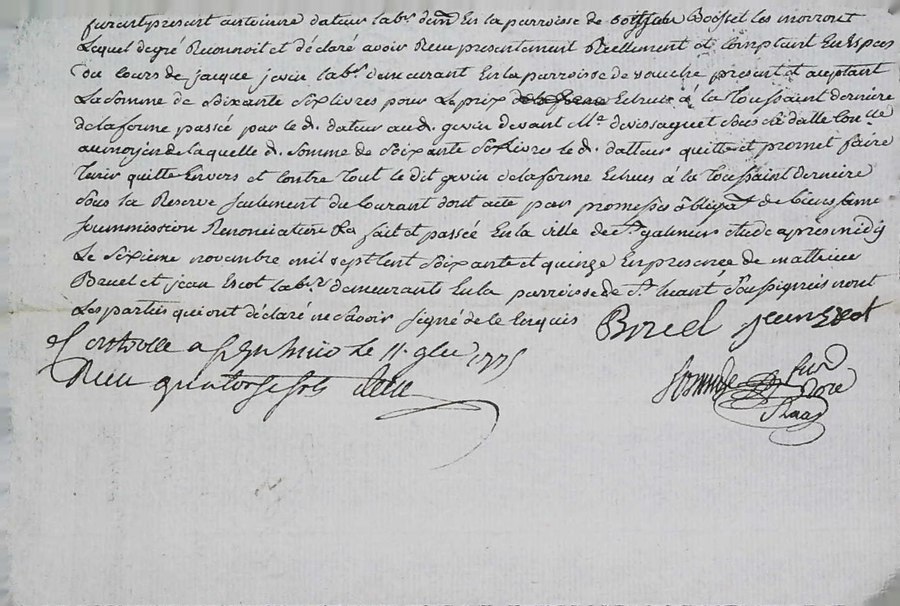 fut present antoinne dateur lab.r dem.t En la parroisse de Boisset les montrond
Lequel degré Reconnoit et déclaré avoir Reçu presentement Reellement et comptant En Espces
du cours de jacque gevin lab.r demeurant En la parroisse de veauche present et aceptant
La somme de Soixante Six livres pour Le prix de la ferme Echeue à la Toussaint derniere
de la ferme passée par le d. dateur au d. gevin devant M.e
au moyen de laquelle d. somme de Soixante Six livres le d. datteur quitte et promet faire
Tenir quitte Envers et Contre Tout le dit gevin de la ferme Echues à la Toussaint derniere
Sous la Reserve Seulement du Courant dont acte par promesses obligat. de biens
Soummission Renonciation fait et passée En la ville de S.t galmier étude apres midy
Le Sixieme novembre mil Sept Cent Soixante et quinze En presence de mathieu
Bruel et jean Escot lab.rs demeurants En la parroisse de S.t Soussignés nont
Les parties qui ont déclaré ne Savoir Signé de ce Enquis Jean Escot
Controllé a le 11. 9bre 1775
Reçu quatorze sols